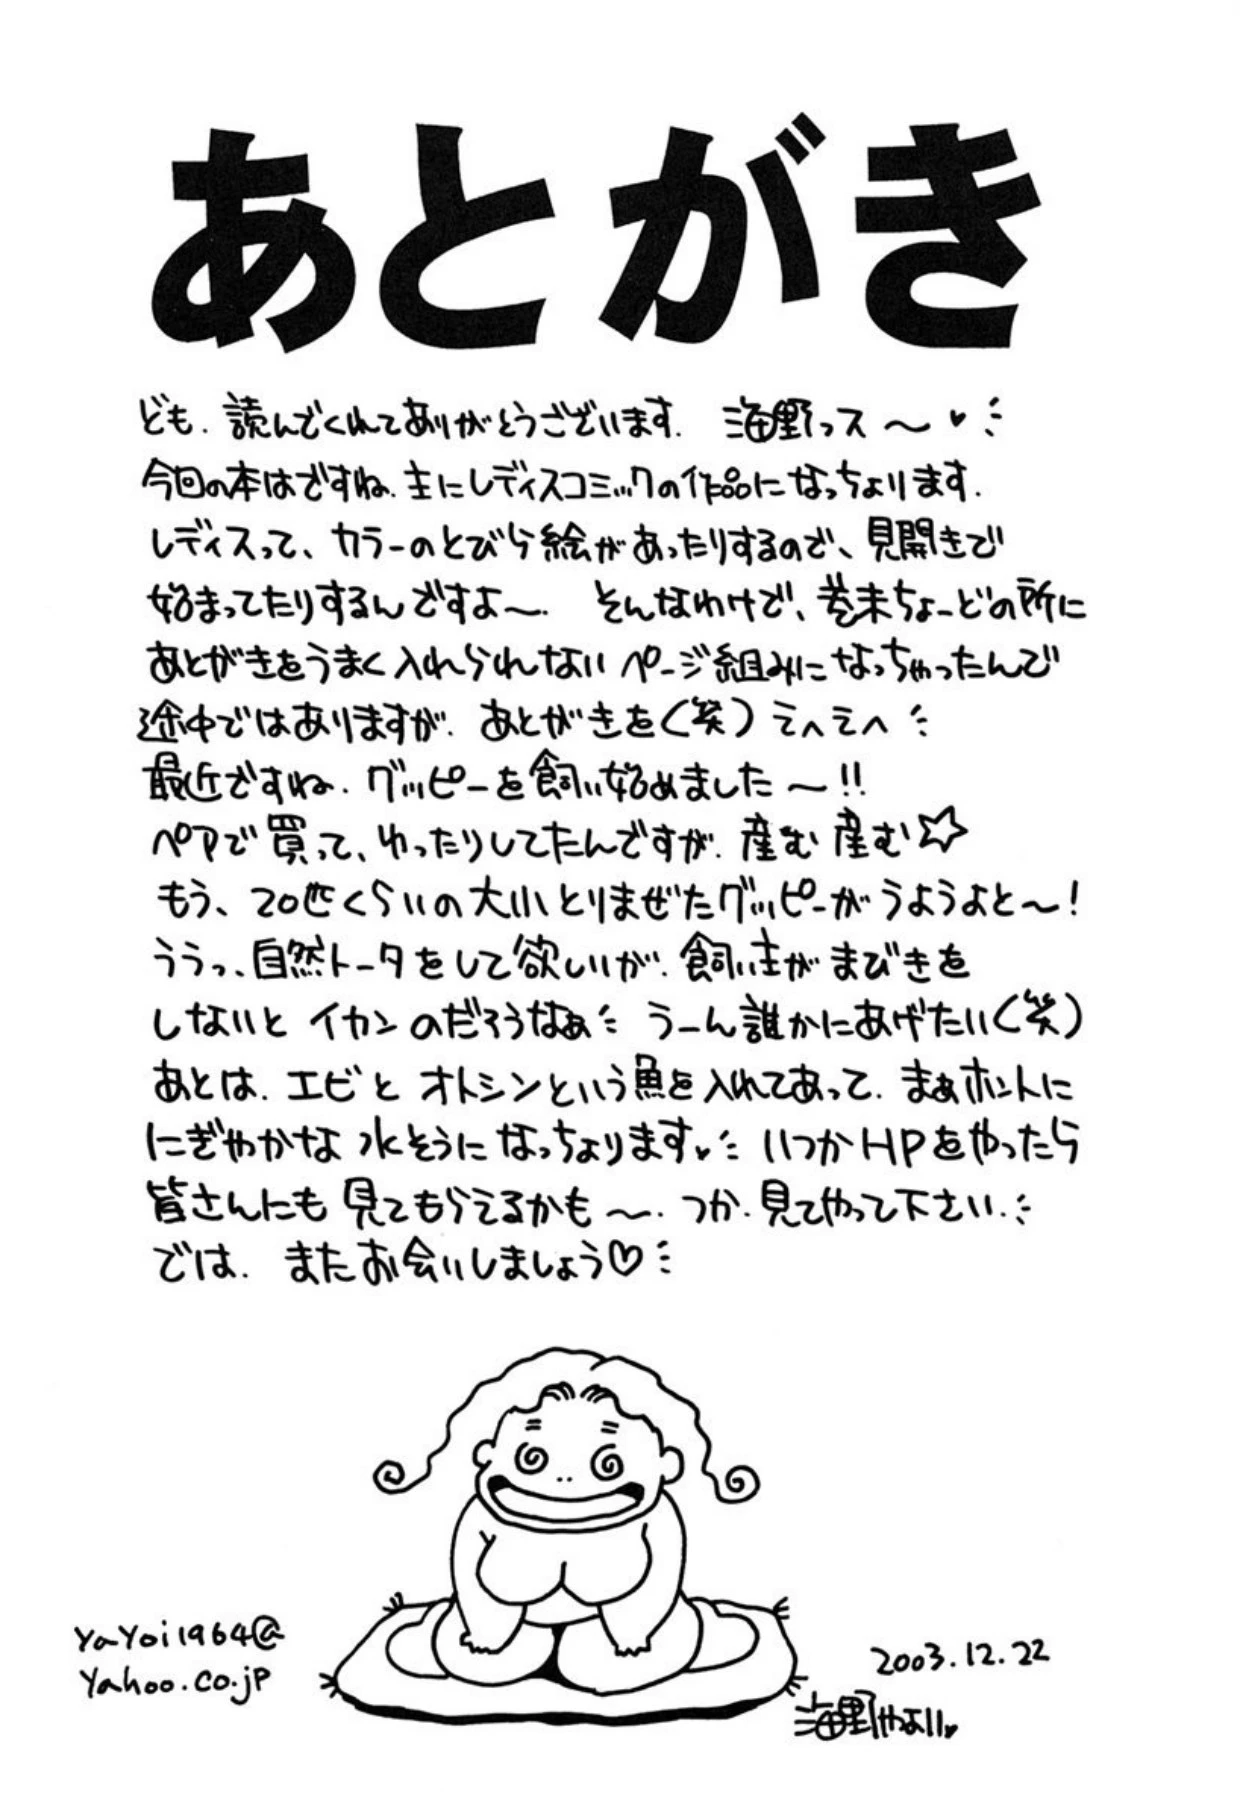 あとがき
ども．読んでくれてありがとうございます．海野っス～♥
今回の本はですね．主にレディスコミックの作品になっちょります．
レディスって、カラーのとびら絵があったりするので、見開きで
始まってたりするんですよ～．そんなわけで、巻末ちょーどの所に
あとがきをうまく入れられないページ組みになっちゃったんで
途中ではありますが．あとがきを（笑）えへえへ
最近ですね．グッピーを飼い始めました～!!
ペアで買って、ゆったりしてたんですが．産む産む☆
もう、20匹くらいの大小とりまぜたグッピーがうようよと～！
ううっ、自然トータをして欲しいが．飼い主がまびきを
しないとイカンのだろうなぁ うーん誰かにあげたい（笑）
あとは．エビとオトシンという魚を入れてあって．まぁホントに
にぎやかな水そうになっちょります♥ いつかHPをやったら
皆さんにも見てもらえるかも～．つか．見てやって下さい．
では．またお会いしましょう♡
YaYoi1964@
Yahoo.co.jp
2003.12.22
海野やよい♥